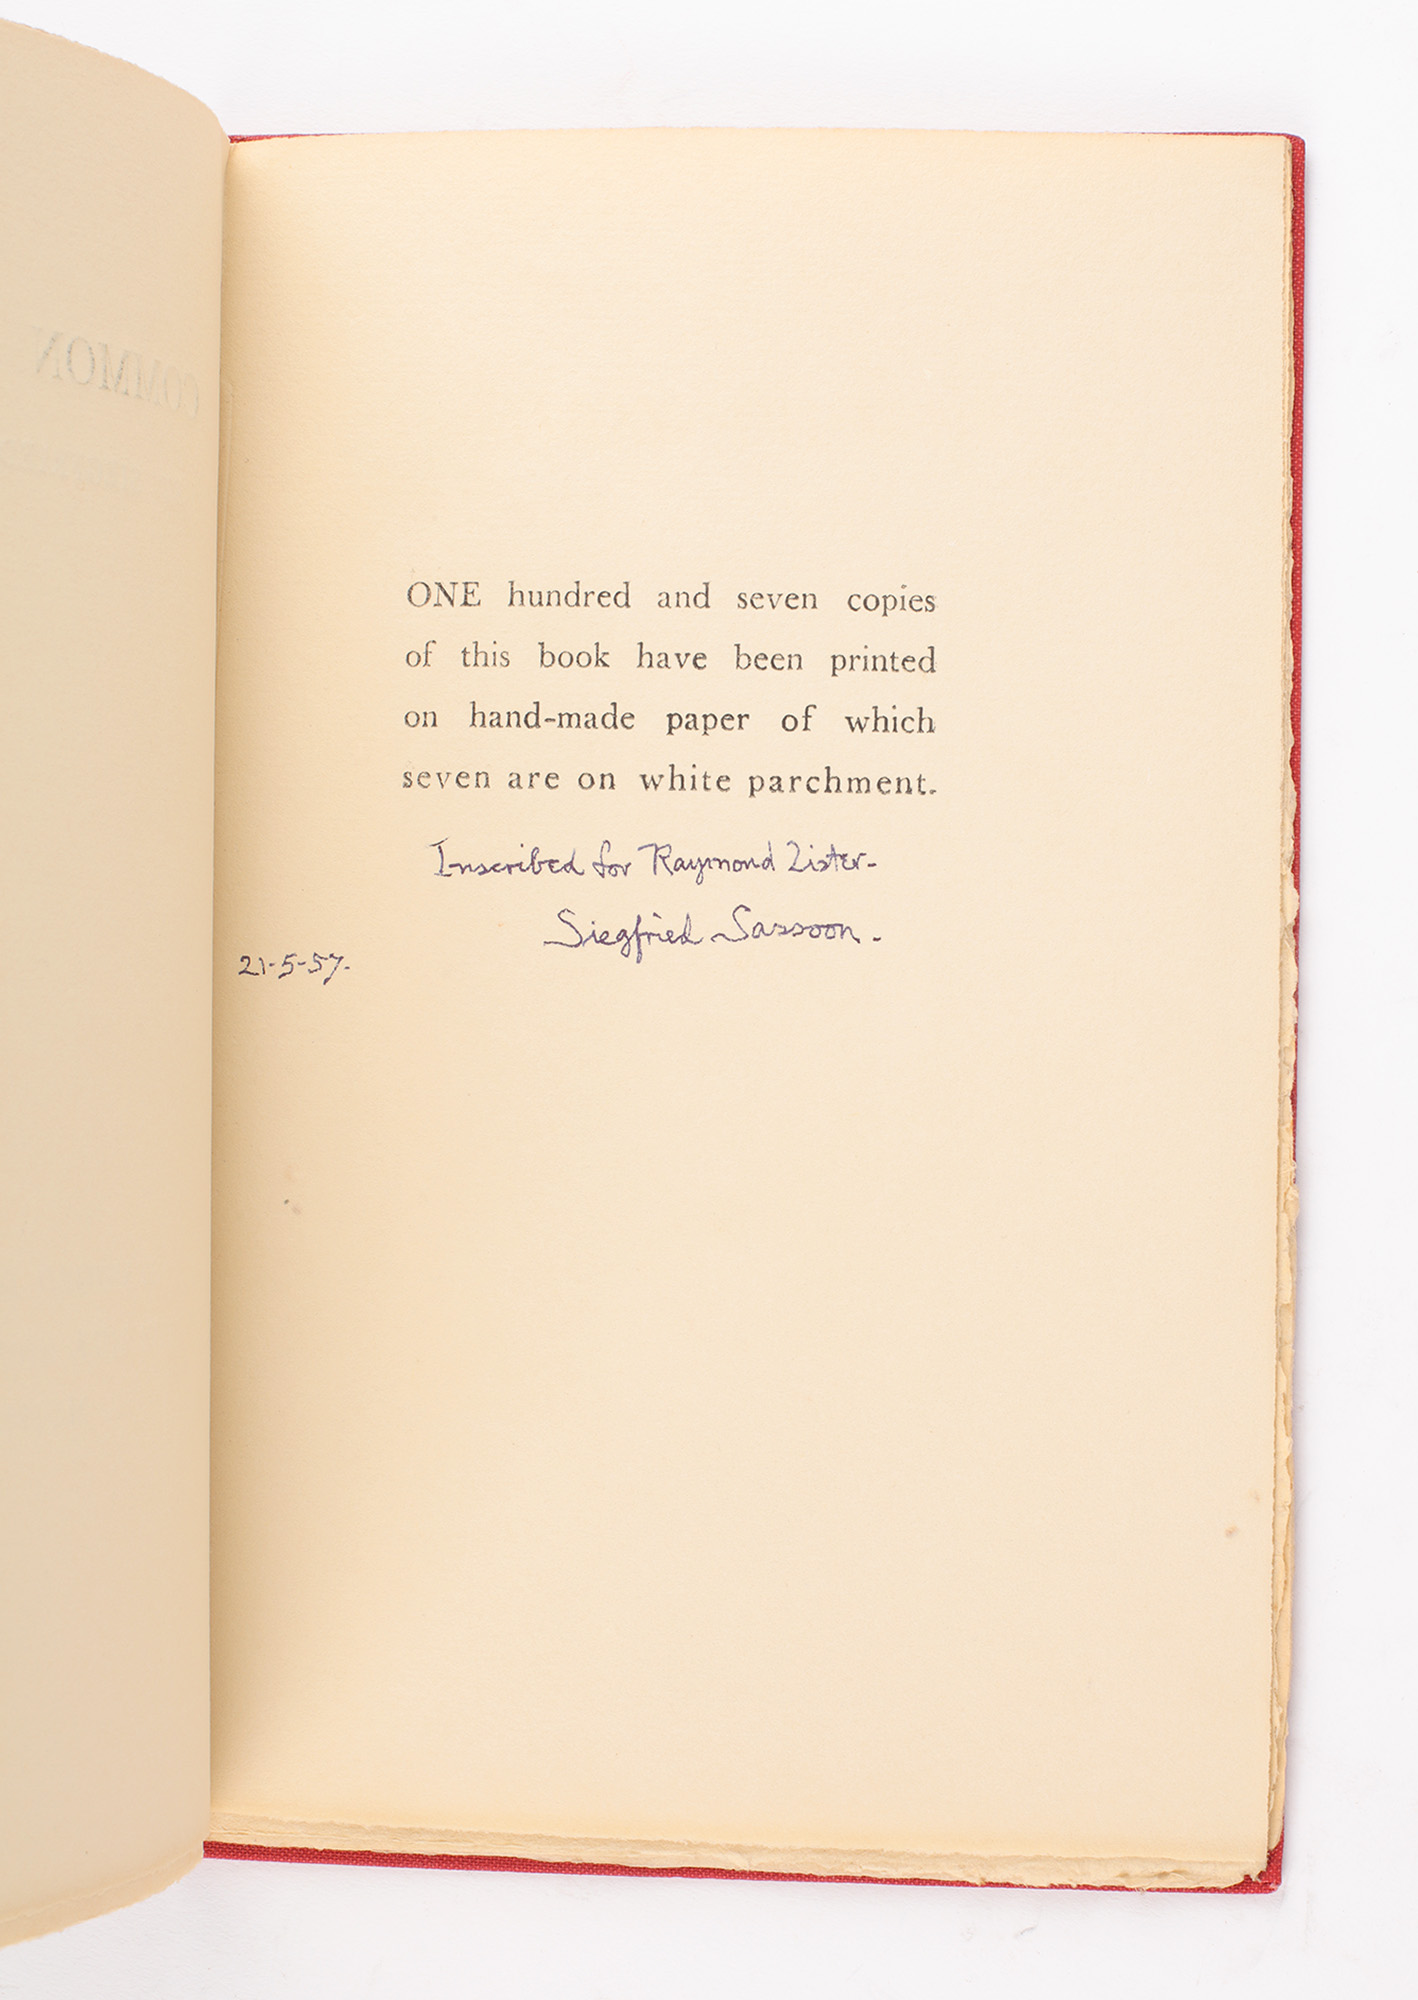 COMMON
ONE hundred and seven copies
of this book have been printed
on hand-made paper of which
seven are on white parchment.
Inscribed for Raymond Lister-
Siegfried Sassoon.
21-5-57.